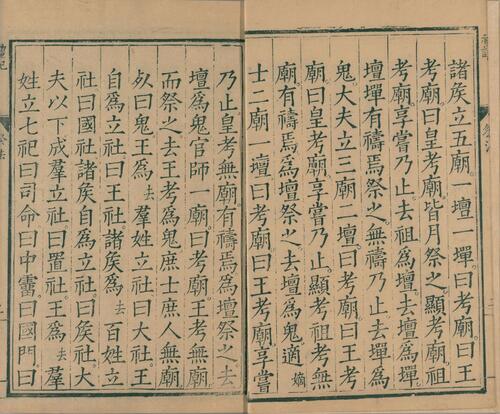 諸矦立五廟一壇一墠曰考廟曰王
考廟曰皇考廟皆月祭之顯考廟祖
考廟享嘗乃止去祖爲壇去壇爲墠
壇墠有禱焉祭之無禱乃止去墠爲
鬼大夫立三廟二壇曰考廟曰王考
廟曰皇考廟享嘗乃止顯考祖考無
廟有禱焉爲壇祭之去壇爲鬼適嫡
士二廟一壇曰考廟曰王考廟享嘗
乃止皇考無廟有禱焉爲壇祭之去
壇爲鬼官師一廟曰考廟王考無廟
而祭之去王考爲鬼庶士庶人無廟
死曰鬼王爲去羣姓立社曰大社王
自爲立社曰王社諸矦爲去百姓立
社曰國社諸矦自爲立社曰矦社大
夫以下成羣立社曰置社王爲去羣
姓立七祀曰司命曰中霤曰國門曰